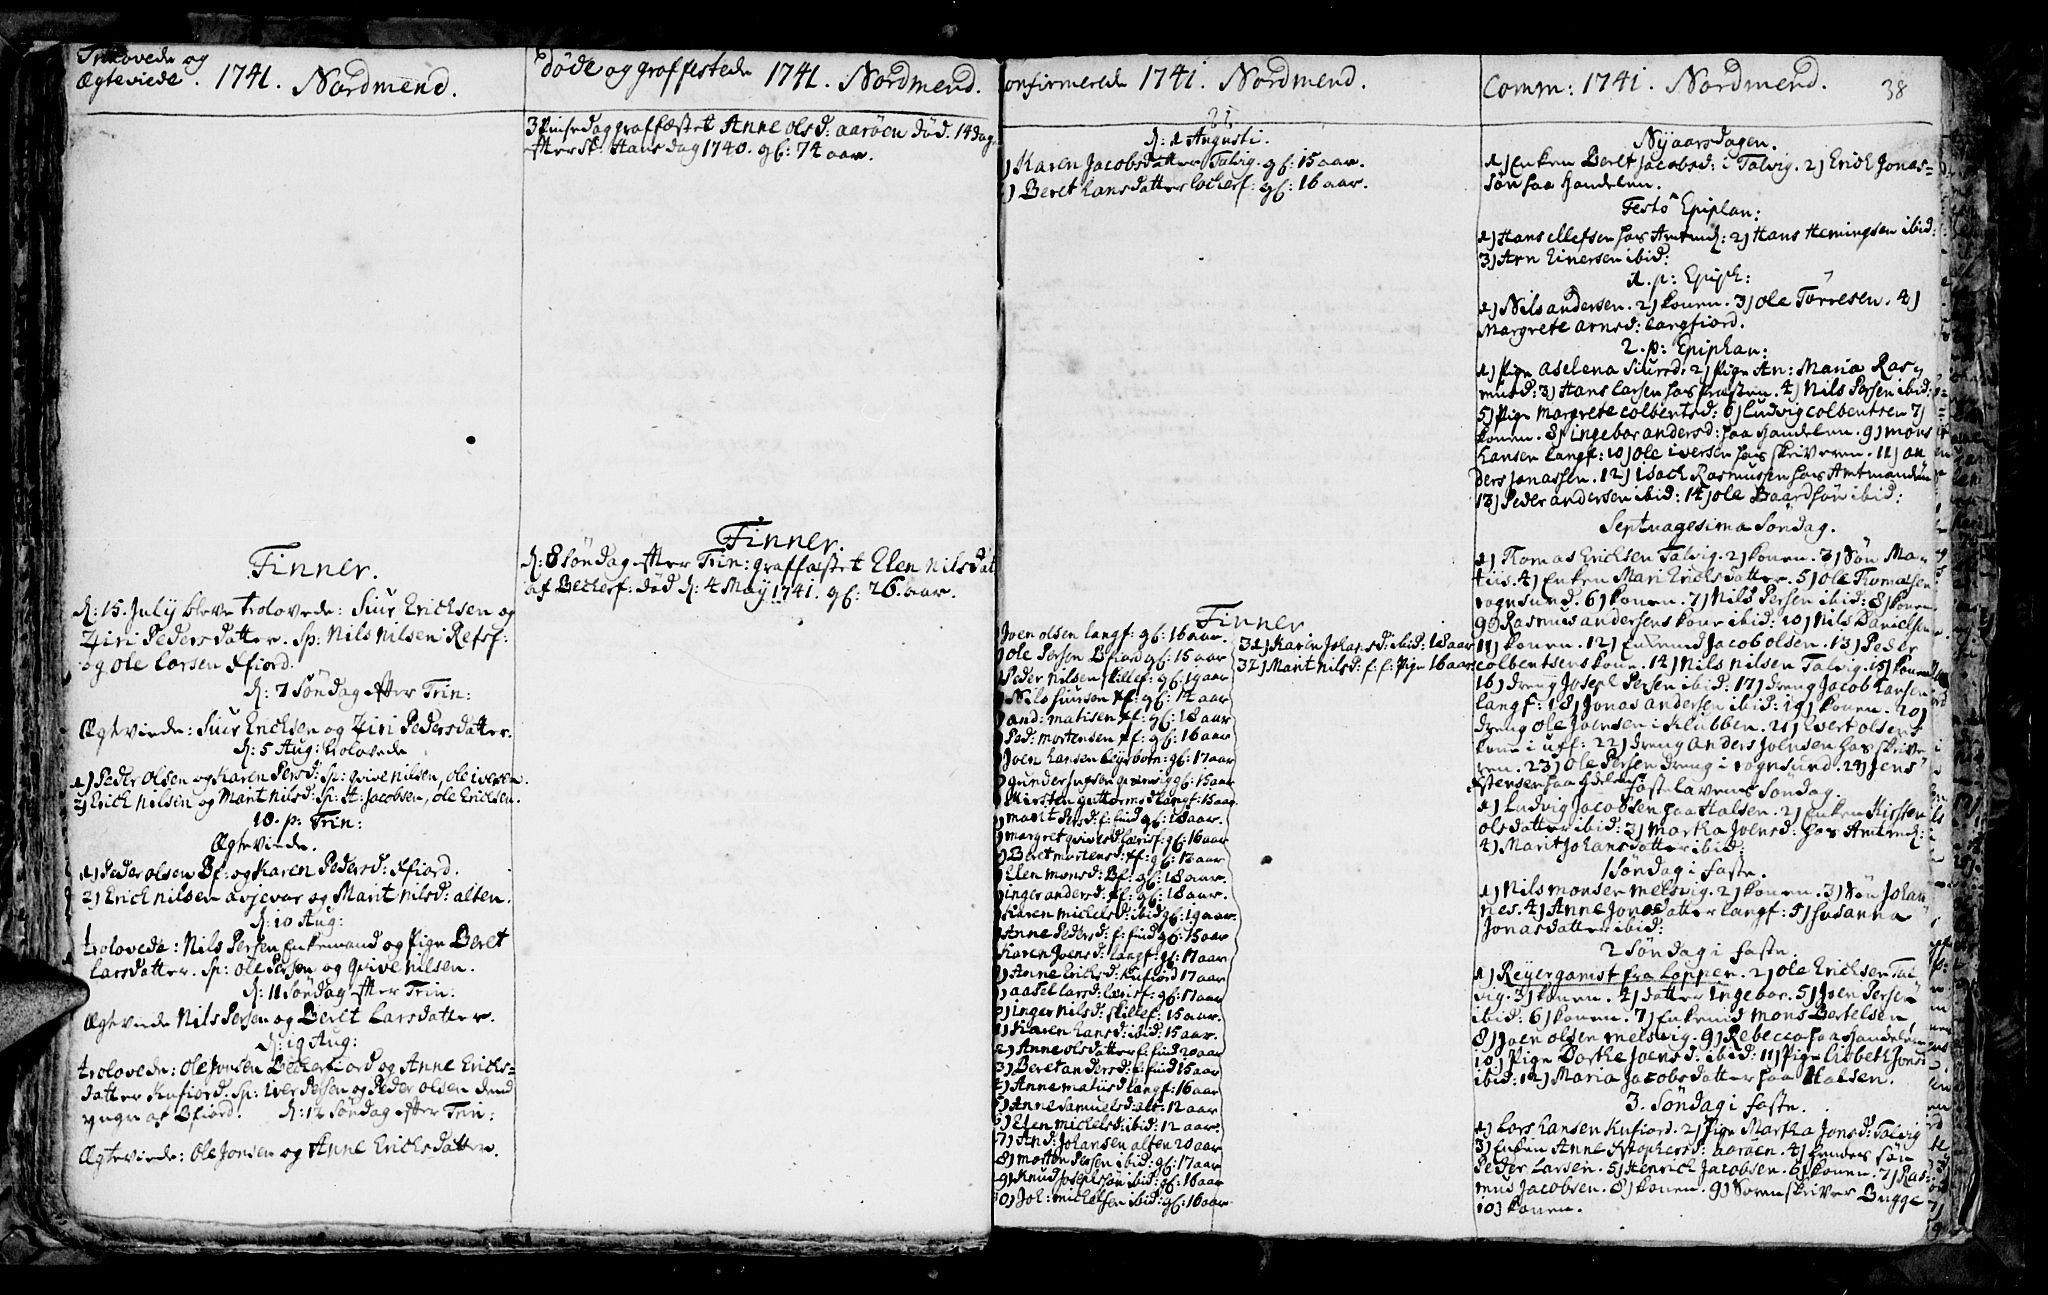 Trolovede og
Ægteviede. 1741. Nordmend.
Finner.
d: 15. July bleve trolovede: Siur Ericksen og
Ziri Pedersdatter. Sp: Nils Nilsen Refsf:
og Ole Larsen xfiord.
d: 7 Søndag effter Trin:
Ægteviede: Siur Ericksen og Ziri Pedersdatter.
d: 5 Aug: trolovede
1) Peder Olsen og Karen Persd: Sp: qvive Nilsen, ole iversen.
2) Erick Nilsen og Marit Nilsd: Sp: H: Jacobsen, ole Ericksen.
10. p: Trin:
Ægteviede.
1) Peder olsen Bf: og Karen Pedersd: xfiord.
2) Erick Nilsen avjevar og Marit Nilsd: alten.
d: 10 Aug:
trolovede: Nils Persen Enkemand og Pige Beret
Larsdatter. Sp: ole Persen og Qvive Nilsen.
d: 11 Søndag effter Trin:
Ægteviede Nils Persen og Beret Larsdatter.
d: 19 Aug:
trolovede: Ole Jonsen Beckerfiord og Anne Ericks=
datter Kufiord. Sp: Iver Persen og Peder olsen dend
yngre af Bfiord. d: 12 Søndag effter Trin:
Ægteviede: Ole Jonsen og Anne Ericksdatter.
Døde og graffestede 1741. Nordmend.
3 Pintsedag graffæstet Anne olsd: aarøen død. 14 dag
effter St: Hans dag 1740. gl: 74 aar.
Finner.
d: 8 Søndag effter Trin: graffæstet Elen Nilsdat
af Beckerf: død d: 4 May 1741. gl: 26. aar.
Confirmerede 1741. Nordmend.
21
d: 1 Augusti.
1) Karen Jacobsdatter Talvig. gl: 15 aar.
2) Beret Hansdatter lockerf: gl: 16 aar.
Finner
Joen olsen langf: gl: 16 aar.
) ole Persen Bfiord gl: 15 aar
) Peder Nilsen skillef: gl: 19 aar
) Nils siursen xf: gl: 14 aar
) and: matisen xf: gl: 18 aar
) Ped: mortensen xf: gl: 16 aar
) Joen Hansen Leysbotn: gl: 17 aar
) gunder gl: 15 aar
) Kirsten guttormsd langf: 15 aar
) marit Persd: f: find gl: 18 aar.
) margret qvivesd lærisf: gl: 16 aar
) Beret mortensd: xf: gl: 13 aar
) Elen monsd: Bf: gl: 18 aar.
) inger andersd: xf: gl: 18 aar.
) Karen michelsd: ibid gl: 19 aar.
) Anne Pedersd: f: find gl: 15 aar
Karen Joensd: langf: gl: 17 aar
) Anne Ericksd: Kufiord 17 aar
) aasel larsd: lærisf: gl: 17 aar
) inger Nilsd: skillef: 15 aar.
1) Karen Hansd: ibid: 15 aar.
2) Anne olsdatter f: find 20 aar
3) Beret andersd: f: find 15 aar
4) Anne matiisd langf: 16 aar
5) Anne Samuelsd: alt: 12 aar
6) Elen michelsd: ibid: 12 aar.
7) And: Johansen alten 20 aar
8) morten Persen ibid: gl: 17 aar
9) Knud Josephsøn ibid: gl: 16 aar
0) Joh: michelsen ibid: gl: 16 aar
31) Karen Johansd: ibid: 18 aar
32) Marit Nilsd: f: f: Pige 16 aar
Comm: 1741. Nordmend. 38
Nyaarsdagen.
1) Enken Beret Jacobsd: i Talvig. 2) Erich Jonas=
søn paa Handelen.
Festo Epiphan:
1) Hans ellefsen hos Amtmd: 2) Hans Hemingsen ibid:
3) Arn Einersen ibid:
1. p: Epiph:
1) Nils andersen. 2) konen. 3) ole Torresen. 4)
Margrete arnsd: langfiord.
2. p: Epiphan:
1) Pige aselena Siursd: 2) Pige An: Maria Ras=
musd: 3) Hans larsen hos Præsten. 4) Nils Persen ibid:
5) Pige Margrete colbentsd: 6) Ludvig colbentsen 7)
konen. 8) ingebor andersd: paa Handelen. 9) mons
Hansen langf: 10) ole iversen hos skriveren. 11) an
ders Jonassen. 12) Isach Rasmussen hos Amtmanden
13) Peder andersen ibid: 14) ole Baardsøn ibid:
Septuagesima Søndag.
1) Thomas Ericksen Talvig. 2) konen. 3) Søn Ma=
tiis. 4) Enken Mari Ericksdatter. 5) ole Thomassen
rognsund. 6) konen. 7) Nils Persen ibid: 8) konen
9) Rasmus andersens kone ibid: 10) Nils Danielsen
11) konen. 12) Enkemd Jacob olsen. 13) Peder
colbentsens kone. 14) Nils Nilsen Talvig. 15) konen
16) dreng Joseph Persen ibid: 17) dreng Jacob Larsen
langf: 18) Jonas andersen ibid: 19) konen. 20)
dreng ole Joensen i Klubben. 21) Evert olsens
kone i uff: 22) dreng anders Joensen hos skrive
ren. 23) ole Persen dreng i rognsund. 24) Jens
Estensen paa Handelen. Fastelavens Søndag.
1) Ludvig Jacobsen paa Halsen. 2) Enken Kirsten
olsdatter ibid: 3) Martha Joensd: hos Amtmd:
4) Marit Johansdatter ibid:
1 Søndag i faste.
1) Nils monsen melsvig. 2) konen. 3) Søn Johan
nes. 4) Anne Jonsdatter langf: 5) Susanna
Jonasdatter ibid:
2 Søndag i faste.
1) Reyer gamst fra Loppen. 2) ole Ericksen Tal
vig. 3) konen. 4) datter Ingebor. 5) Joen Persen
ibid: 6) konen. 7) Enkemd Mons Bertelsen
8) Joen olsen melsvig. 9) Rebecca paa Handelen
10) Pige Dorthe Joensd: ibid: 11) Pige Lisbeth Jonsd
ibid: 12) Maria Jacobsdatter paa Halsen.
3. Søndag i faste.
1) Lars Hansen Kufiord. 2) Pige Martha Jonsd: Talvig
3) Enken Anne Christophersd: aarøen. 4) hendes søn
Peder Larsen. 5) Henrich Jacobsen. 6) konen. 7) Ras=
mus Jacobsen. 8) konen. 9) Sorenskriver Bugge
10) konen.